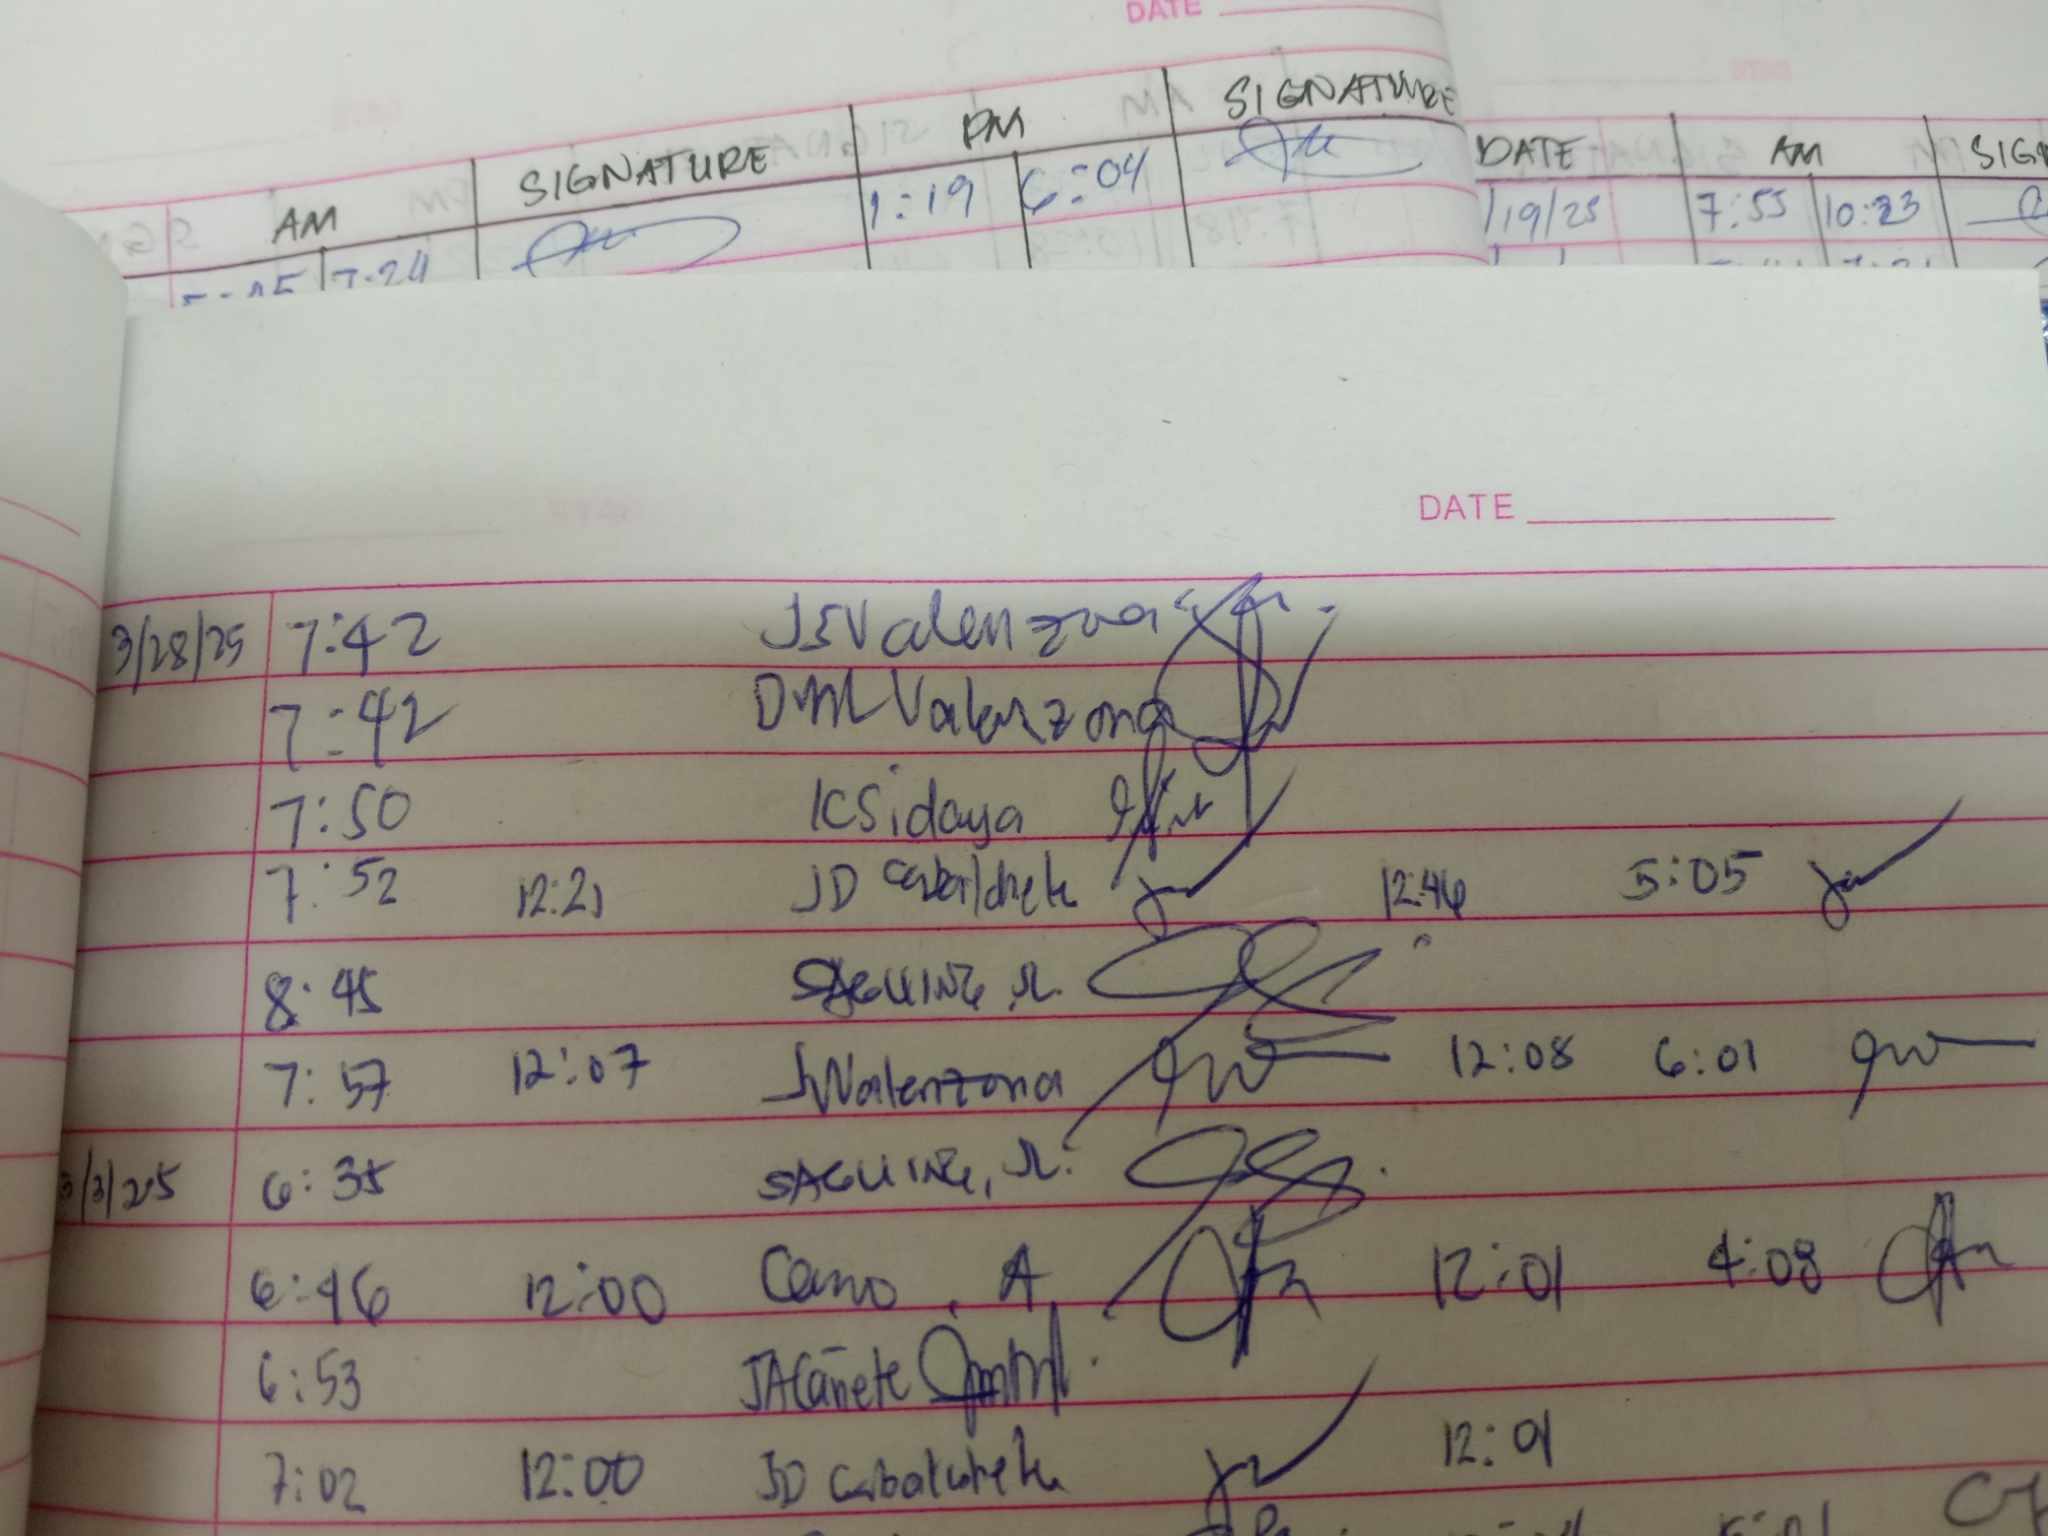 DATE
AM SIGNATURE PM SIGNATURE
7:24 1:19 6:04
DATE AM SIGN
/19/25 7:55 10:23
DATE
3/28/25 7:42 JSValenzona
7:42 DMLValenzona
7:50 KSidaya
7:52 12:21 JD Cabalchete 12:46 5:05
8:45 SAGUING, JR.
7:57 12:07 JValenzona 12:08 6:01
3/3/25 6:35 SAGUING, JR.
6:46 12:00 Cano, A 12:01 4:08
6:53 JACañete
7:02 12:00 JD Cabalchete 12:01